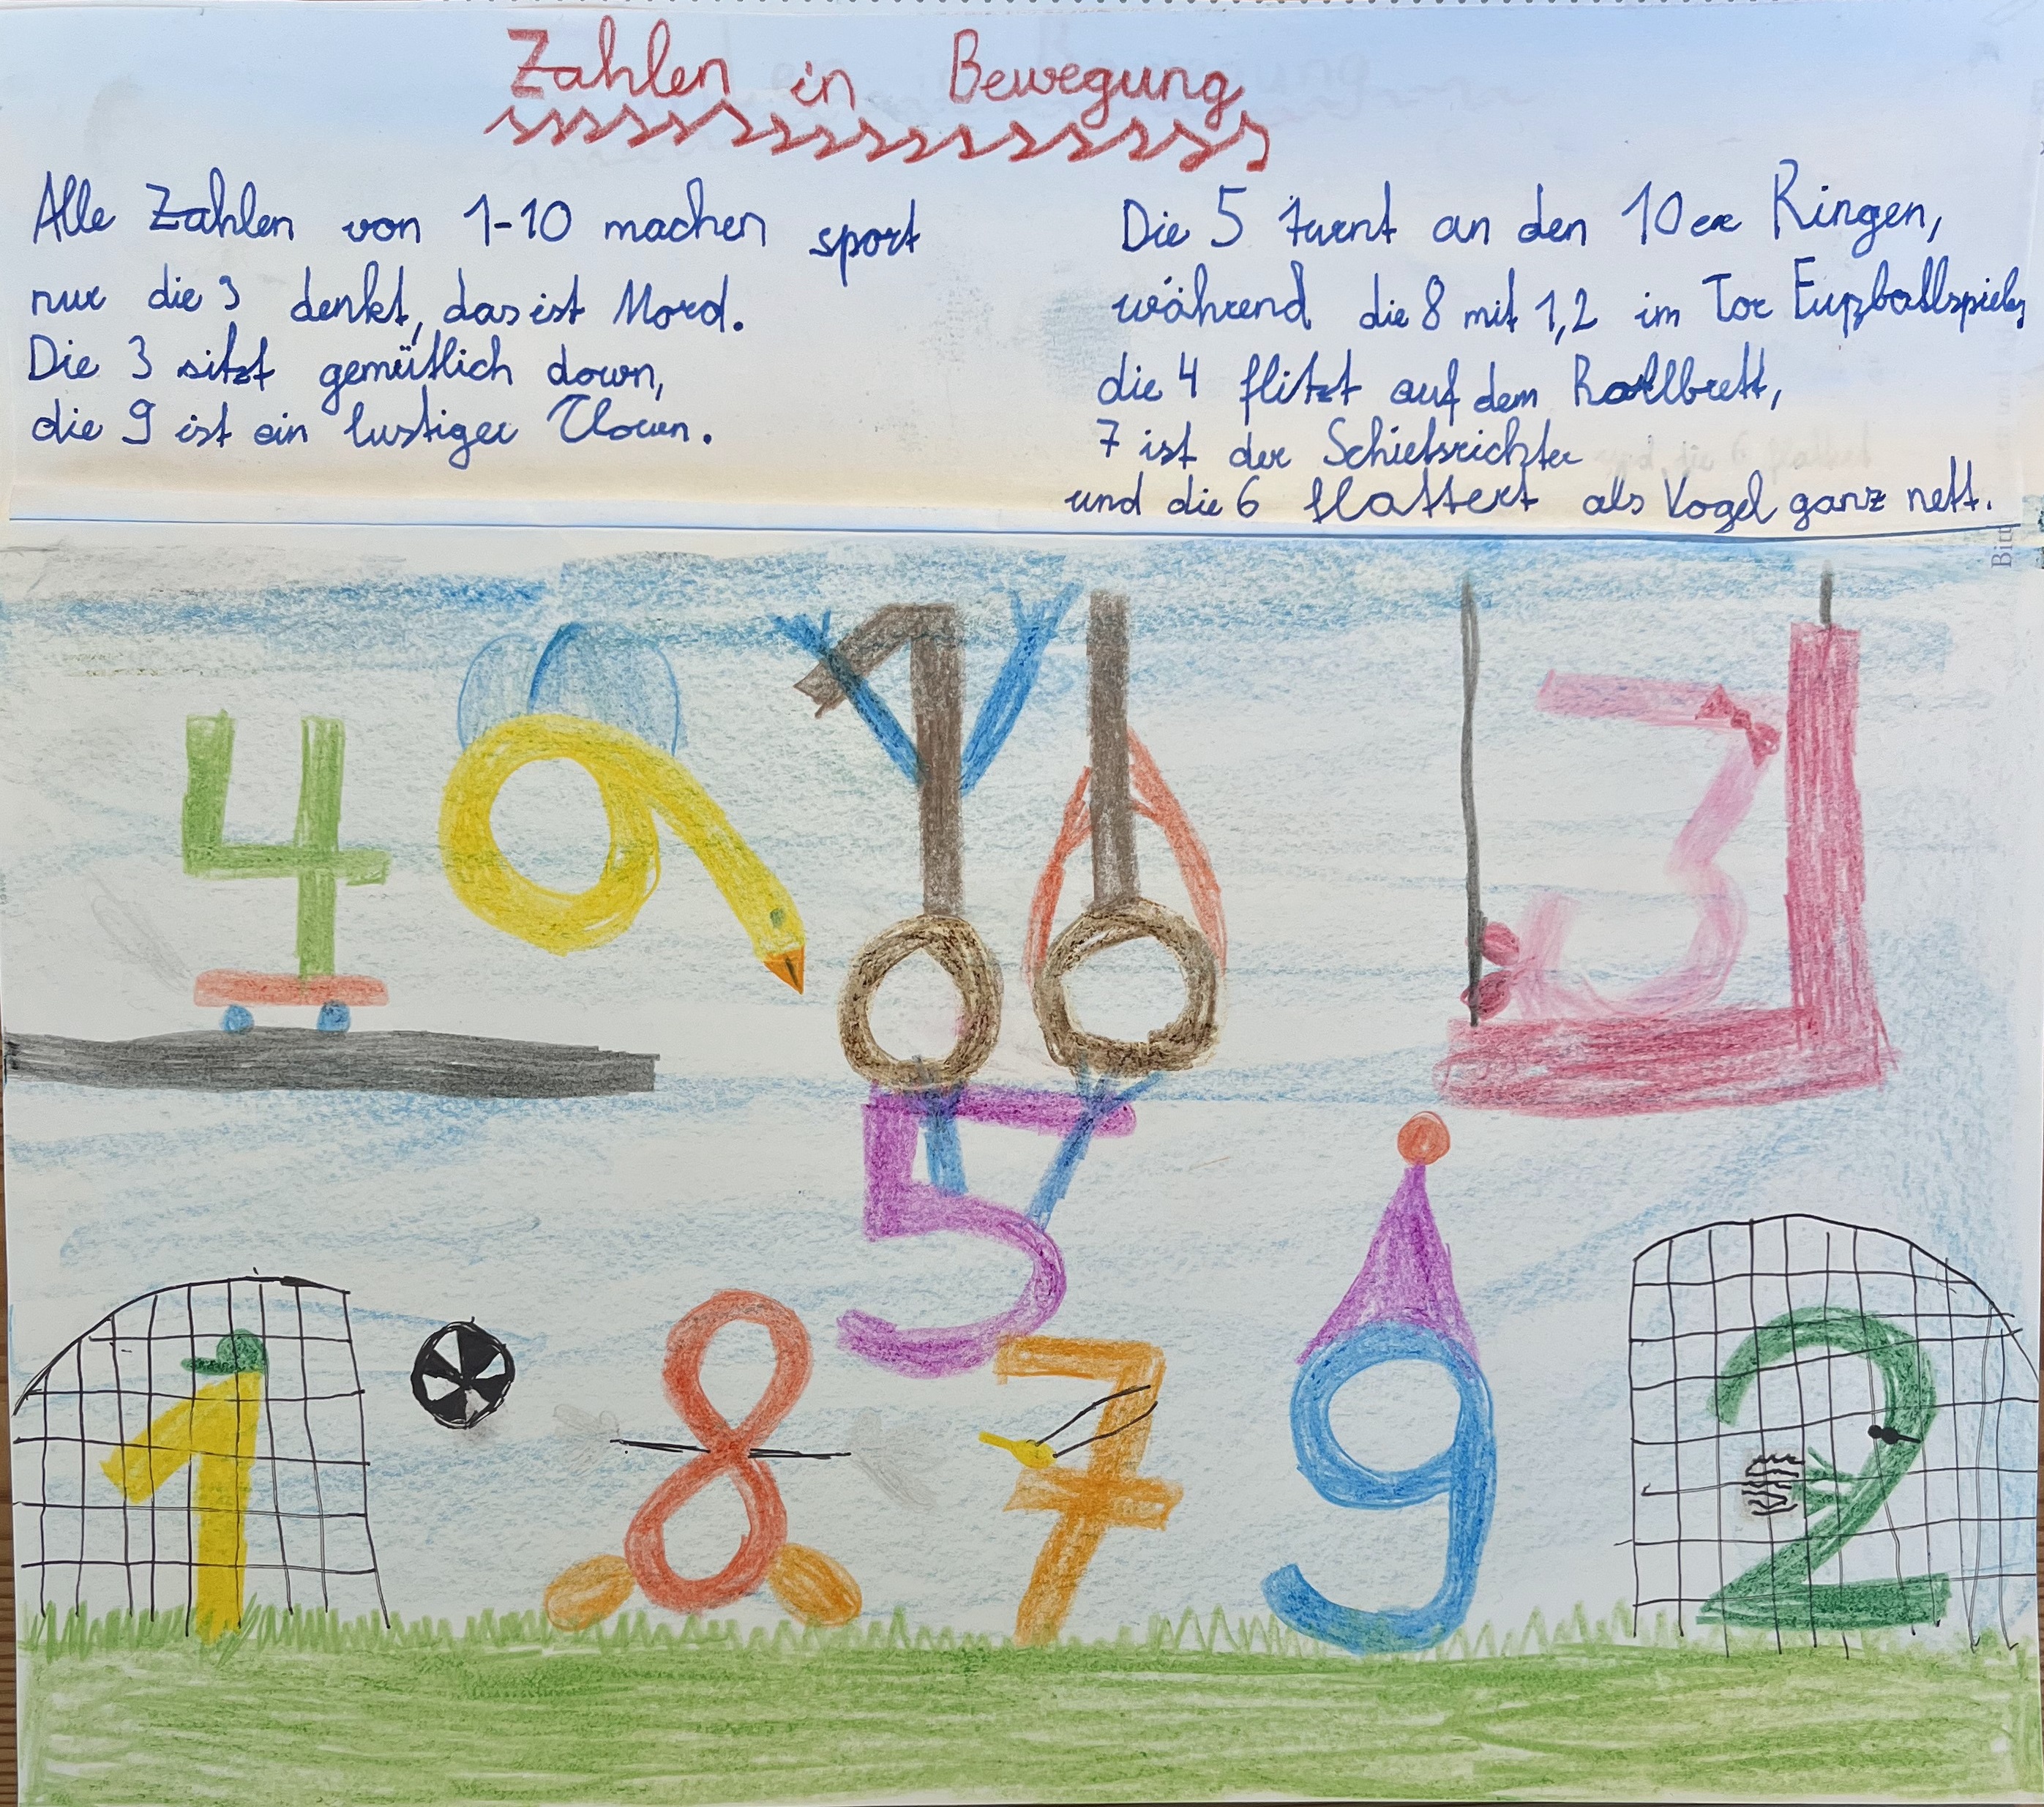 Zahlen in Bewegung
Alle Zahlen von 1-10 machen sport
nur die 3 denkt, das ist Mord.
Die 3 sitzt gemütlich down,
die 9 ist ein lustiger Clown.
Die 5 turnt an den 10er Ringen,
während die 8 mit 1,2 im Tor Fußballspielen
die 4 flitzt auf dem Rollbrett,
7 ist der Schietsrichter
und die 6 flattert als Vogel ganz nett.